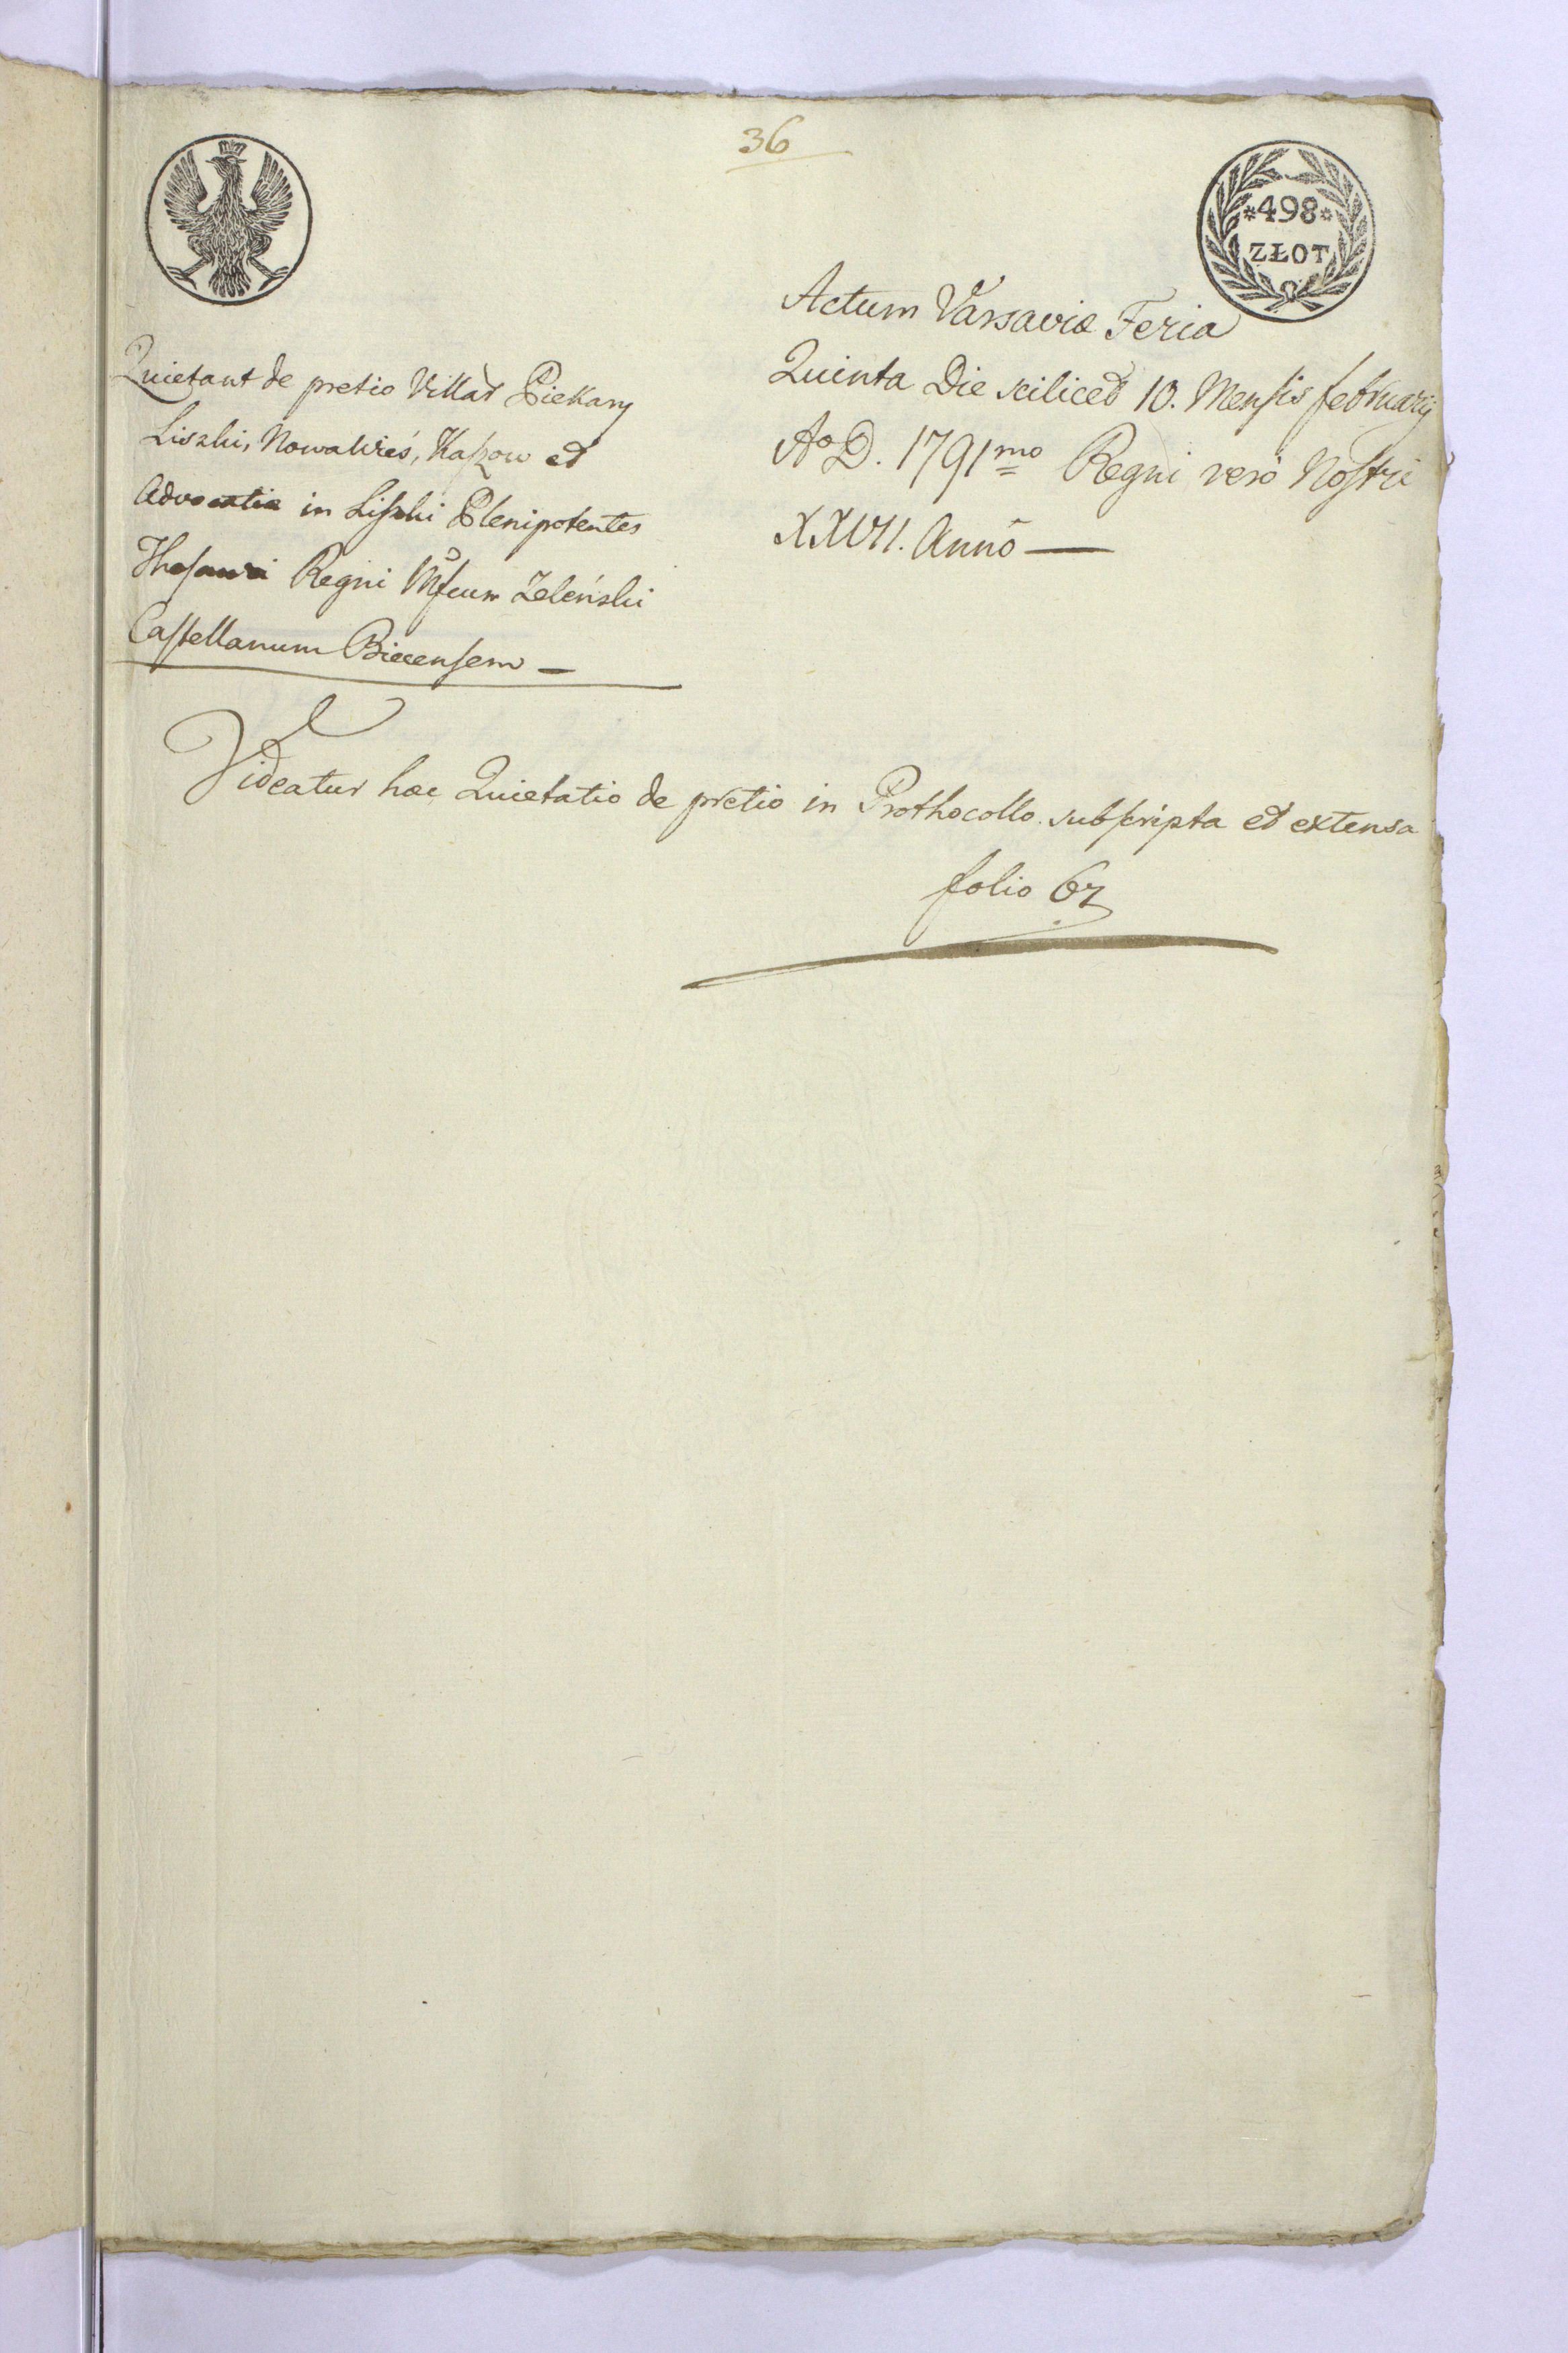 36
*498*
ZŁOT
Actum Varsaviæ Feria
Quinta Die scilicet 10. Mensis februarij
Ao D. 1791mo Regni vero Nostri
XXVII. Anno —
Quietant de pretio Villar Piekary
Liszki, Nowawieś, Kaszow et
Advocatiæ in Liszki Plenipotentes
Thesauri Regni Mfcum Żeleński
Castellanum Biecensem —
Videatur hæc Quietatio de pretio in Prothocollo subscripta et extensa
folio